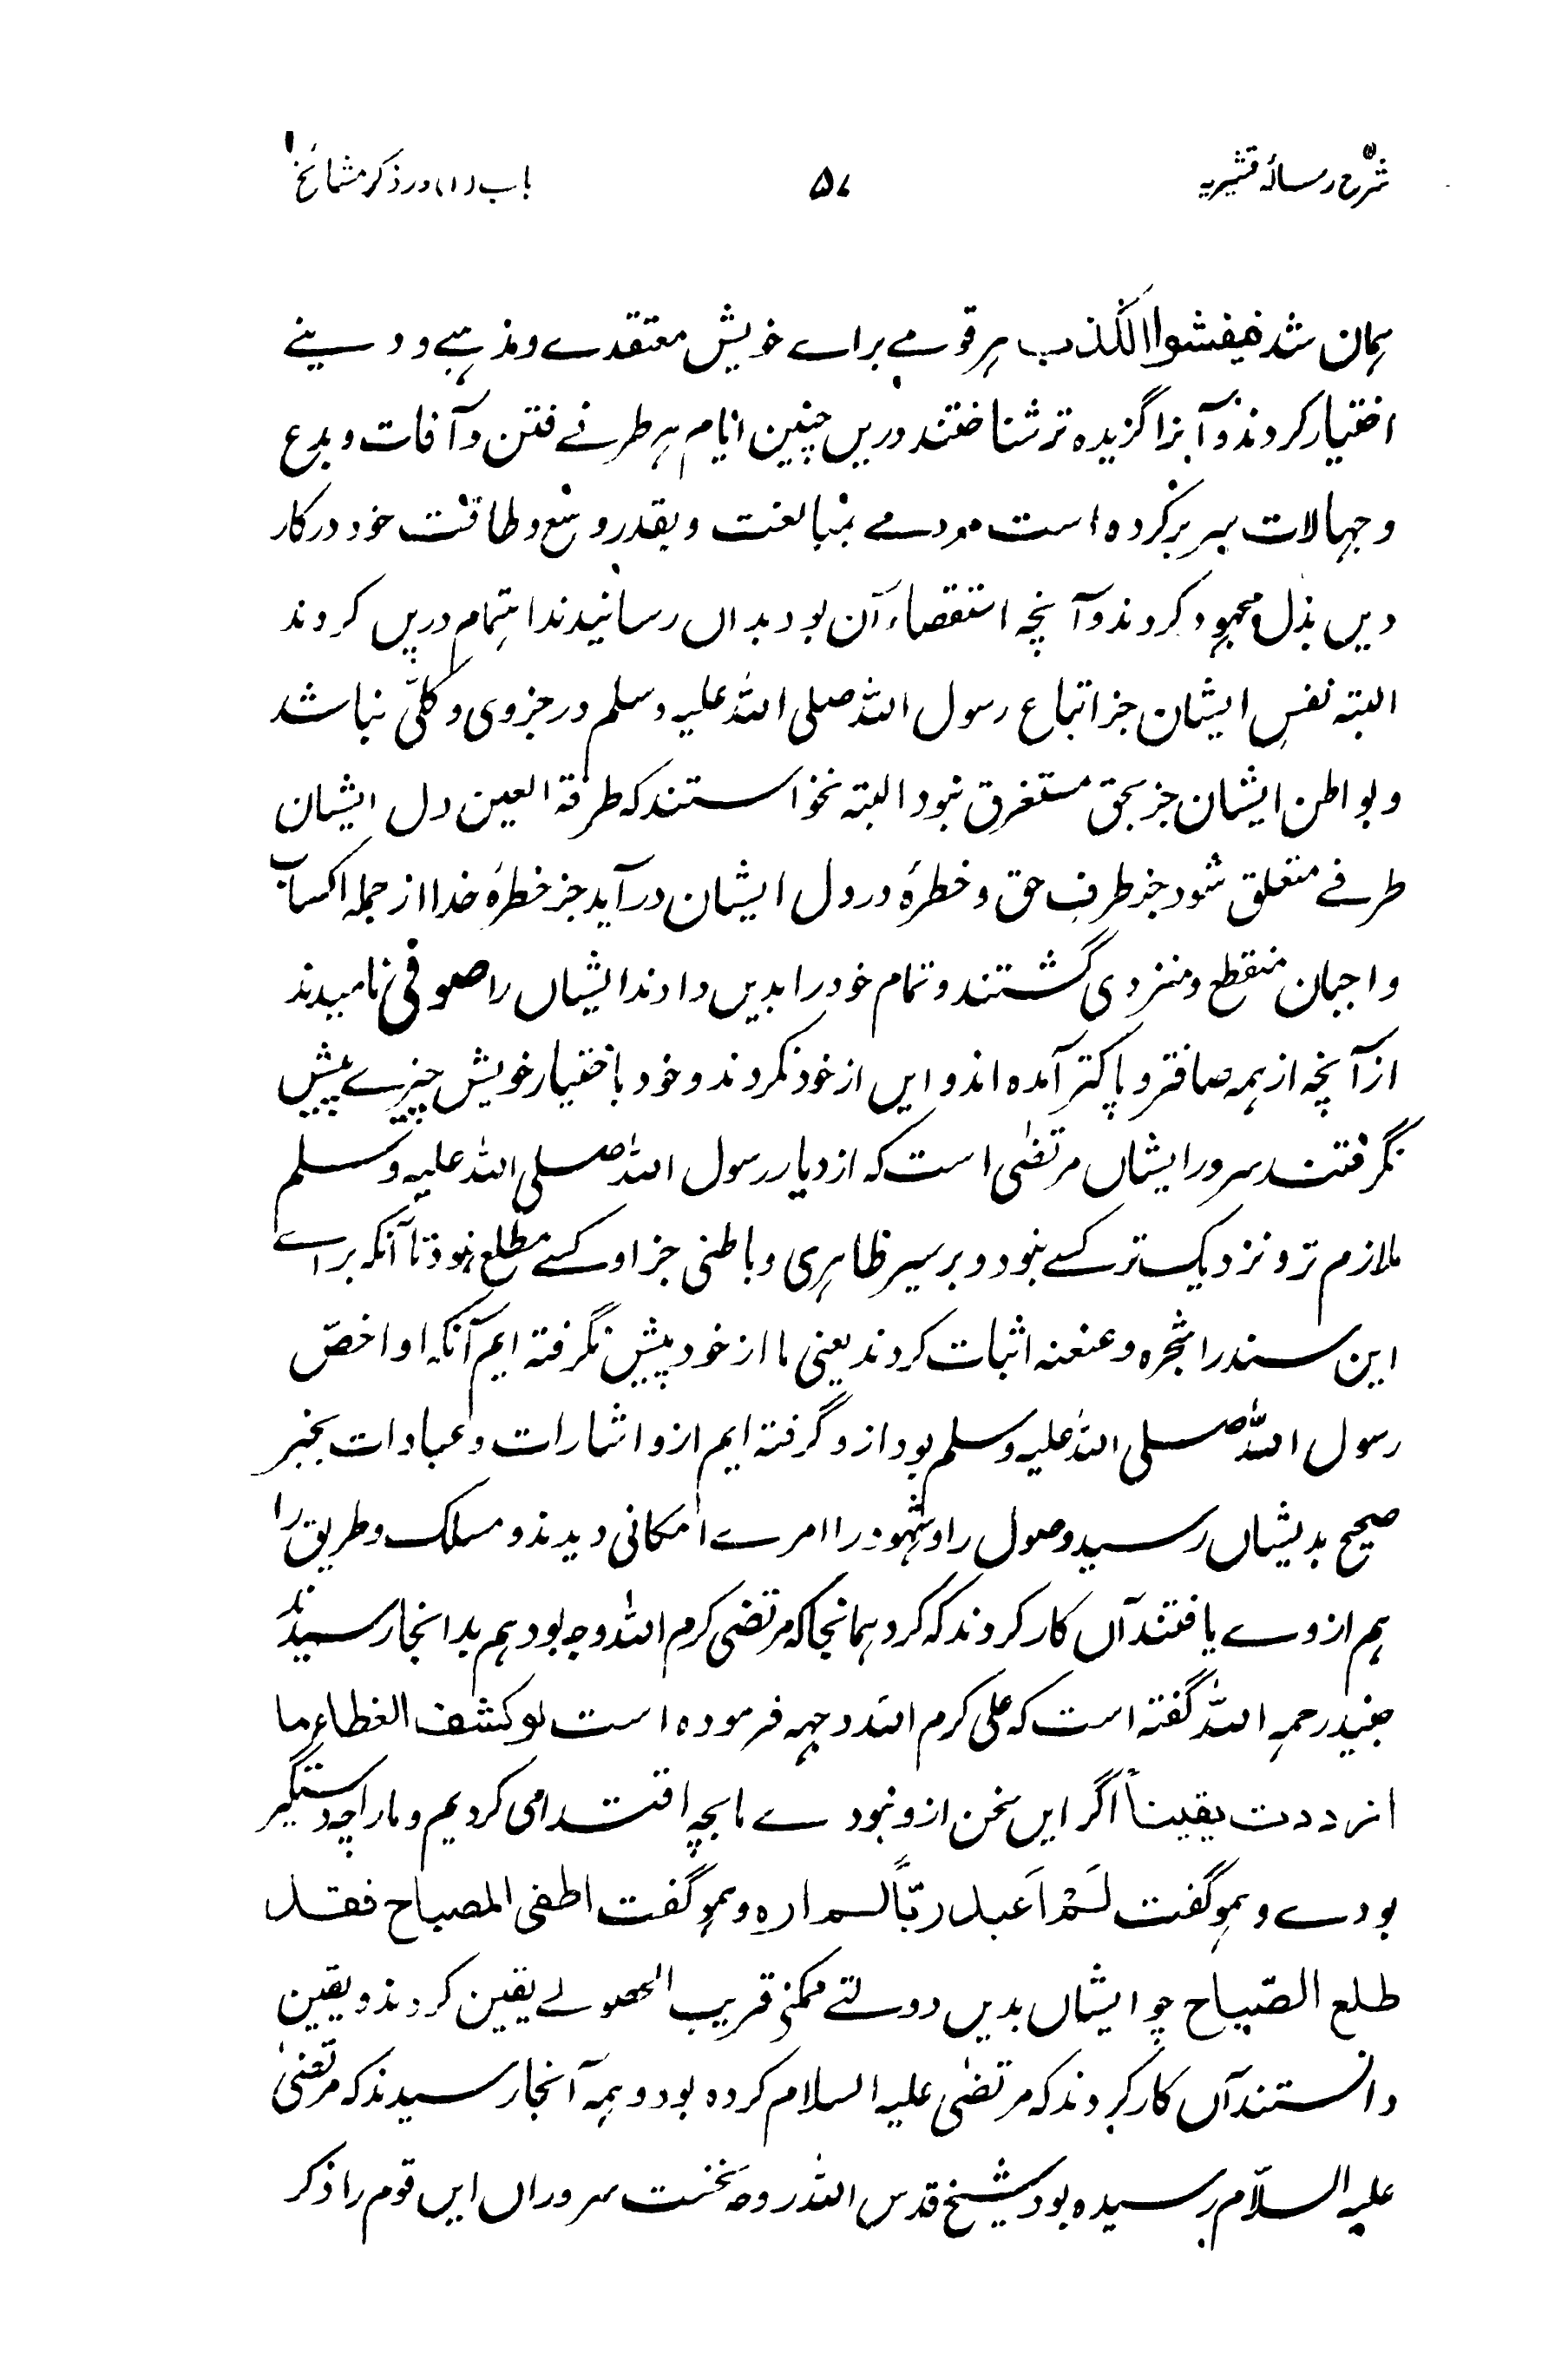 شرح رسالہ قشیریہ ۵۷ باب (۱) در ذکر مشائخ
ہمان شد فیفشوا الکذب ہر قومے براے خویش معتقدے و مذہبے و دینے
اختیار کردند و آنرا گزیدہ تر شناختند دریں چنین ایام ہر طرفے فتن و آفات و بدع
و جہالات سر بر کردہ است مردمے بمتابعت و بقدر وسع و طاقت خود در کار
دیں بذل مجہود کردند و آنچہ استقصاء آن بود بداں رسانیدند اہتمام دریں کردند
البتہ نفس ایشان جز اتباع رسول اللہ صلی اللہ علیہ وسلم در جزوی و کلّی نباشد
و بواطن ایشان جز بحق مستغرق نبود البتہ نخواستند کہ طرفۃ العین دل ایشان
طرفے متعلق شود جز طرف حق و خطرۂ در دل ایشان در آید جز خطرۂ خدا از جملہ اکساب
و منقطع و منزوی گشتند و تمام خود را بدیں دادند ایشاں را صوفی نامیدند
از آنچہ از ہمہ صافتر و پاکتر آمدہ اند و ایں از خود نکردند و خود باختیار خویش چیزے پیش
نگرفتند سرور ایشاں مرتضٰی است کہ از دیار رسول اللہ صلی اللہ علیہ وسلم
ملازم تر و نزدیک تر کسے نبود و بر سیر ظاہری و باطنی جز او کسے مطلع نبود تا آنکہ براے
این سند را شجرہ و عنعنہ اثبات کردند یعنی ما از خود پیش نگرفتہ ایم آنکہ او اخصّ
رسول اللہ صلی اللہ علیہ وسلم بود ازو گرفتہ ایم ازو اشارات و عبادات بخبر
صحیح بدیشاں رسید وصول را و شہود را امرے امکانی دیدند و مسلک و طریق را
ہم از وے یافتند آں کار کردند کہ کرد ہمانجا کہ مرتضی کرم اللہ وجہ بود ہم بدانجا رسیدند
جنید رحمہ اللہ گفتہ است کہ علی کرم اللہ وجہہ فرمودہ است لو کشف الغطاء ما
ازددت یقیناً اگر ایں سخن ازو نبودے ما بچہ اقتدا می کردیم و ما را چہ دستگیر
بودے و ہمو گفت لَمْ اَعبد ربّاً لم ارہ و ہمو گفت اطفی المصباح فقد
طلع الصّباح چو ایشاں بدیں دولتے ممکنے قریب الحصولے یقین کردند و یقین
دانستند آں کار کردند کہ مرتضٰی علیہ السلام کردہ بود و ہمہ آنجا رسیدند کہ مرتضٰی
علیہ السلّام رسیدہ بود شیخ قدس اللہ روحہ نخست سروراں ایں قوم را ذکر